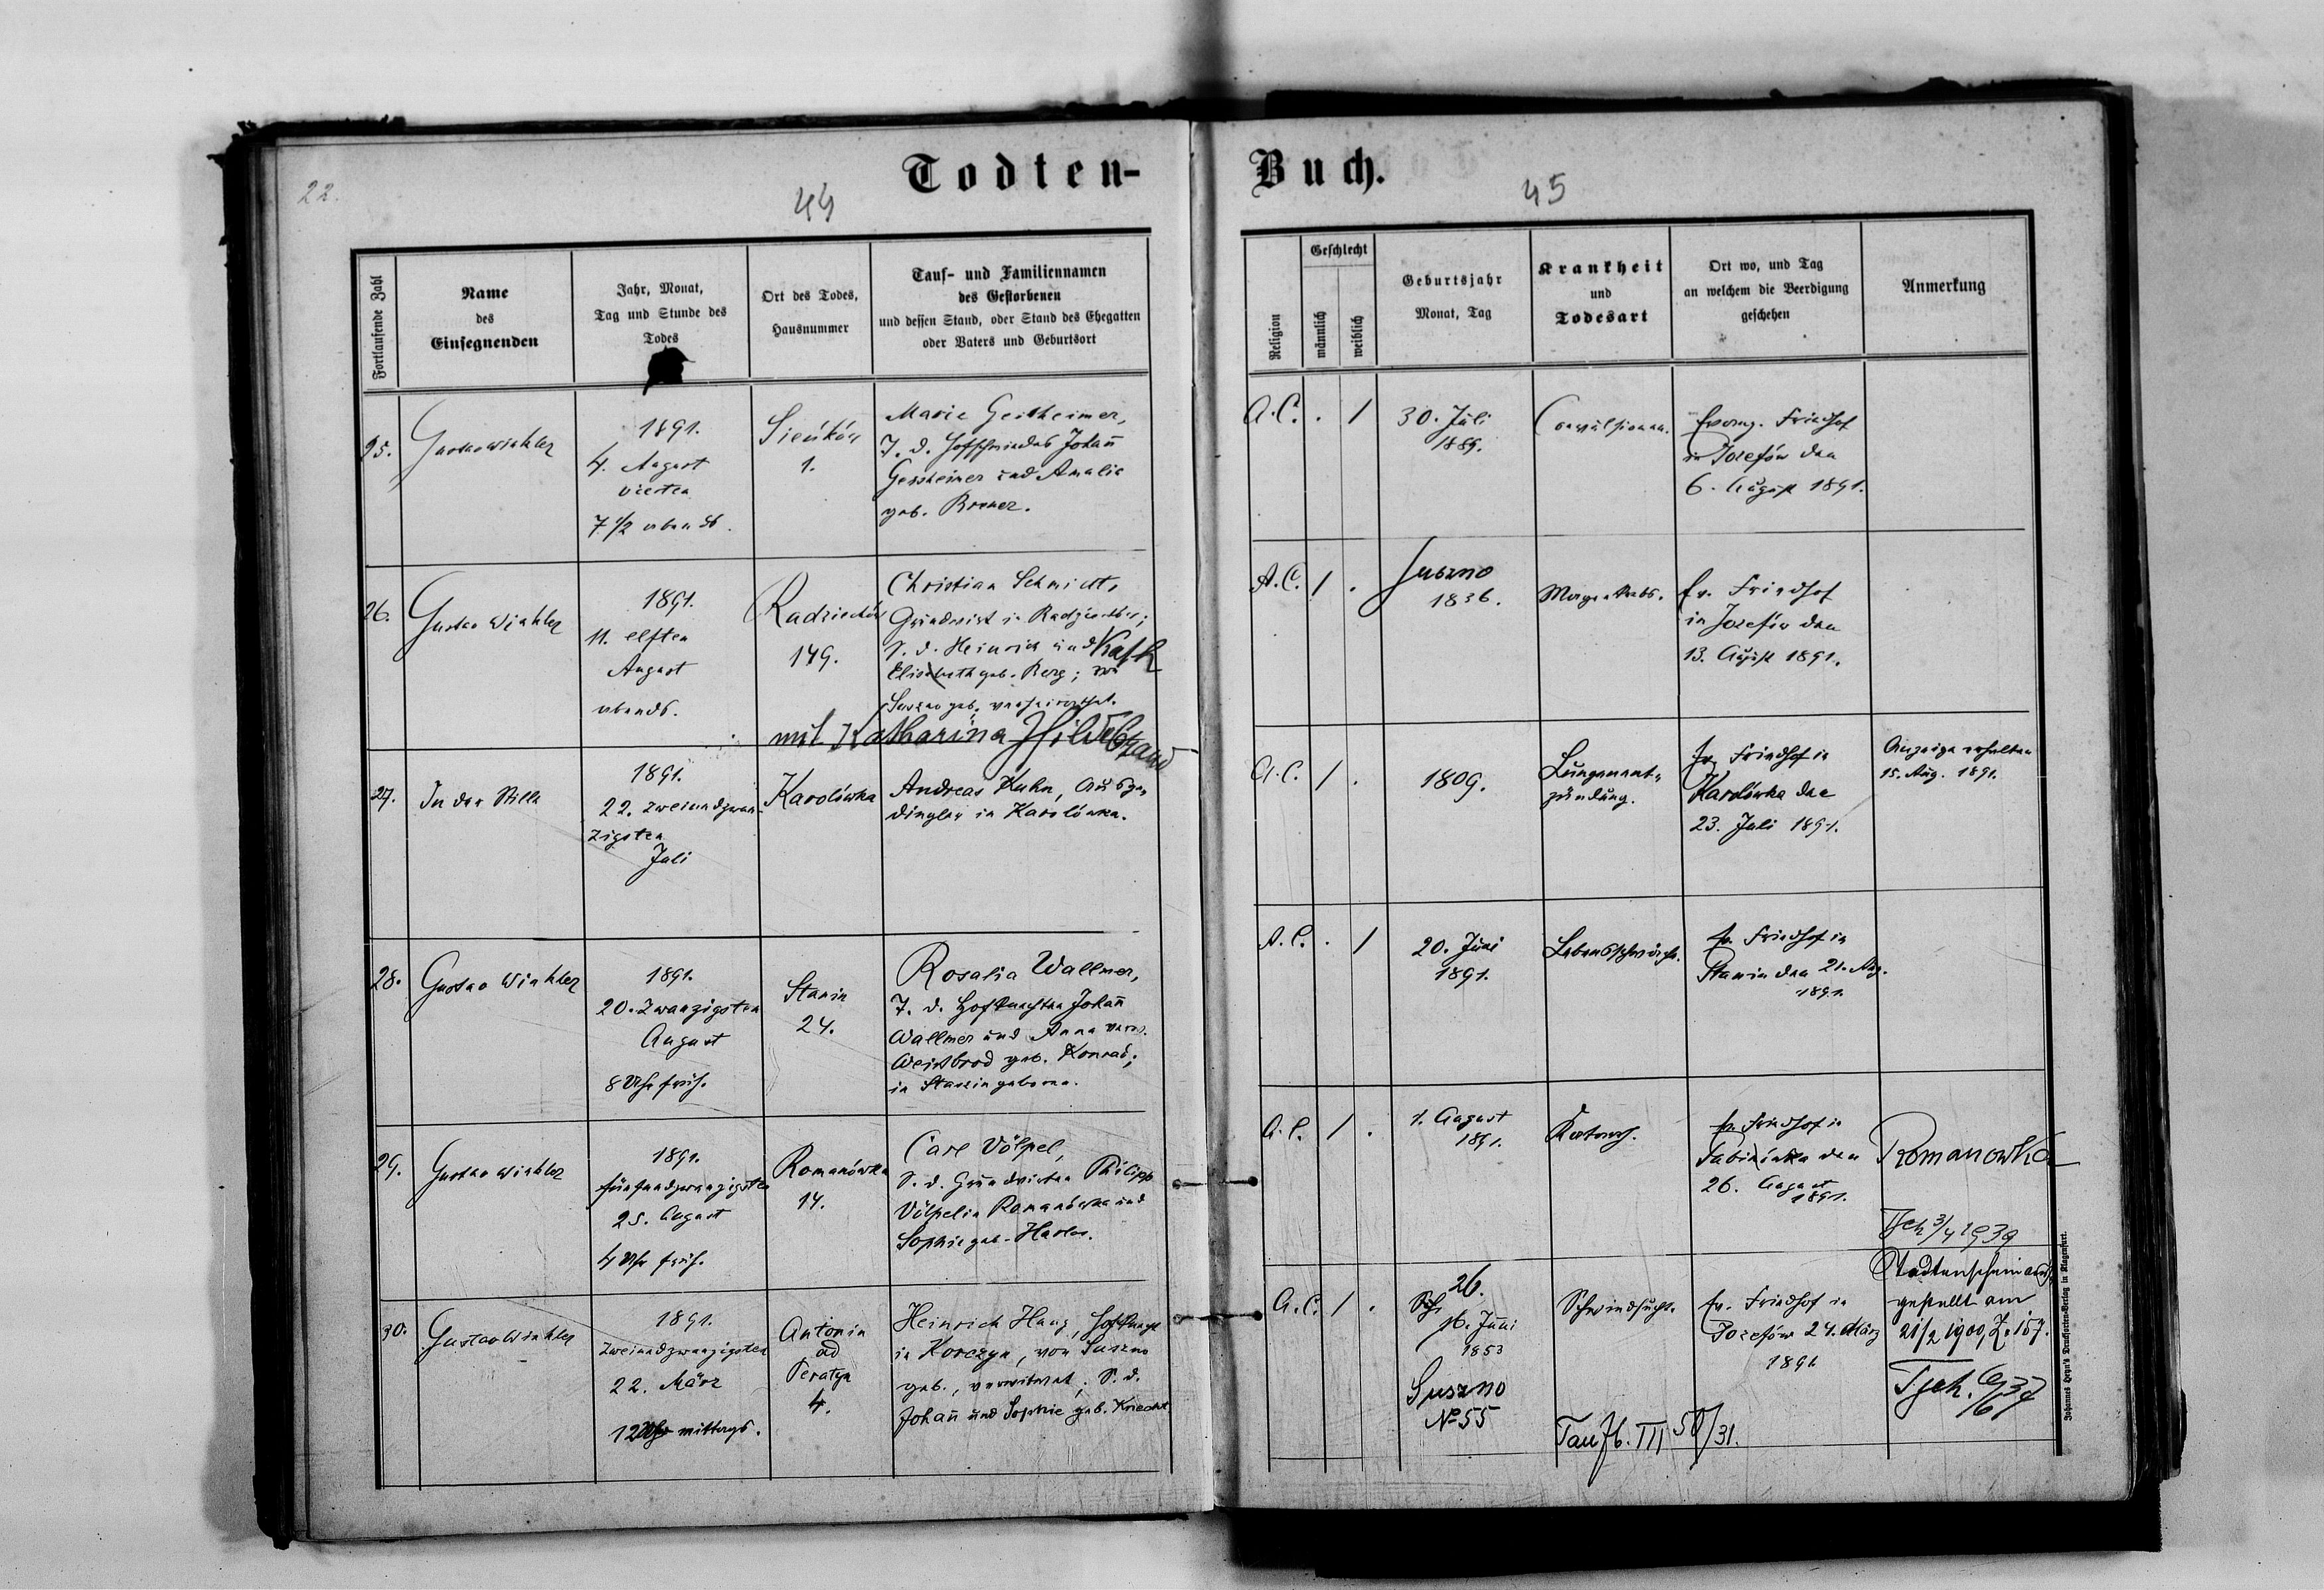 22.
Todten-
Buch.
44
45
Fortlaufende Zahl
Name
des
Einsegnenden
Jahr, Monat,
Tag und Stunde des
Todes
Ort des Todes,
Hausnummer
Tauf- und Familiennamen
des Gestorbenen
und dessen Stand, oder Stand des Ehegatten
oder Vaters und Geburtsort
Religion
Geschlecht
männlich
weiblich
Geburtsjahr
Monat, Tag
Krankheit
und
Todesart
Ort wo, und Tag
an welchem die Beerdigung
geschehen
Anmerkung
25.
Gustav Winkler
1891.
4. August
vierten
7 1/2 abends.
Sieńków
1.
Marie Gessheimer,
T. d. Johañ
Gessheimer und Amalie
geb.
A.C. . 1
30. Juli
1889.
Convulsionen.
Evang. Friedhof
in Josefów den
6. August 1891.
26.
Gustav Winkler
1891.
11. elften
August
abends.
Radziechów
149.
Christian Schmidt,
Grundwirt in Radziechów;
S. d. Heinrich und Kath
Elisabeth geb. Berg; in
Suszno geb. verheirathet.
mit Katharina Hildebrand
A.C. 1 .
Suszno
1836.
Magenkrebs.
Ev. Friedhof
in Josefów den
13. August 1891.
27.
In der Stille
1891.
22. zweiundzwan-
zigsten
Juli
Karolówka
Andreas Kuhn, Ausge-
dingler in Karolówka.
A.C. 1 .
1809.
Lungenent-
zündung.
Ev. Friedhof in
Karolówka den
23. Juli 1891.
Anzeige erhalten
15. Aug. 1891.
28.
Gustav Winkler
1891.
20. Zwanzigsten
August
8 Uhr früh.
Stanin
24.
Rosalia Wallmer,
T. d. Hofknechten Johañ
Wallmer und Anna verw.
Weissbrod geb. Konrad;
in Stanin geboren.
A.C. . 1
20. Juni
1891.
Lebensschwäche.
Ev. Friedhof in
Stanin den 21. Aug.
1891.
29.
Gustav Winkler
1891.
fünfundzwanzigsten
25. August
4 Uhr früh.
Romanówka
14.
Carl Völpel,
S. d. Grundwirten Philipp
Völpel in Romanówka und
Sophie geb. Harlos.
A.C. 1 .
1. August
1891.
Katarrh.
Ev. Friedhof in
den
26. August
1891.
Romanowka
3/4 1939
30.
Gustav Winkler
1891.
Zweiundzwanzigsten
22. März
12 Uhr mittags.
Antonin
ad
4.
Heinrich Haug, Hofknecht
in Korczyn, von Suszno
geb., verwitwet; S. d.
Johañ und Sophie geb. Knecht.
A.C. 1 .
26.
16. Juni
1853
Suszno
№ 55
Schwindsucht.
Taufb. III 50/31.
Ev. Friedhof in
Josefów 24. März
1891
Todtenschein aus-
gestellt am
21/2 1900, Z. 157.
Johannes Heyn's Drucksorten-Verlag in Klagenfurt.